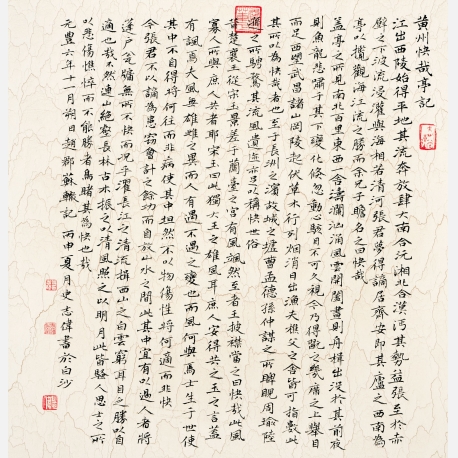 黄州快哉亭記
江出西陵始得平地其流奔放肆大南合沅湘北合漢沔其勢益張至於赤
壁之下波流浸灌與海相若清河張君夢得謫居齊安即其廬之西南為
亭以攬觀江流之勝而余兄子瞻名之曰快哉
蓋亭之所見南北百里東西一舍濤瀾洶涌風雲開闔晝則舟楫出沒於其前夜
則魚龍悲嘯于其下變化倏忽動心駭目不可久視今乃得翫之几席之上舉目
而足西望武昌諸山岡陵起伏草木行列烟消日出漁夫樵父之舍皆可指數此
其所以為快哉者也至于長洲之濱故城之墟曹孟德孫仲謀之所睥睨周瑜陸
遜之所騁騖其流風遺迹亦足以稱快世俗
昔楚襄王從宋玉景差于蘭臺之宮有風颯然至者王披襟當之曰快哉此風
寡人所與庶人共者耶宋玉曰此獨大王之雄風耳庶人安得共之玉之言蓋
有諷焉夫風無雄雌之異而人有遇不遇之變也而風何與焉士生于世使
其中不自得將何往而非病使其中坦然不以物傷性將何適而非快
今張君不以謫為患竊會計之餘功而自放山水之間此其中宜有以過人者將
蓬戶瓮牖無所不快而況乎濯長江之清流挹西山之白雲窮耳目之勝以自
適也哉不然連山絕壑長林古木振之以清風照之以明月此皆騷人思士之所
以悲傷憔悴而不能勝者烏睹其為快也哉
元豐六年十一月朔日趙郡蘇轍記 丙申夏月史志偉書於白沙